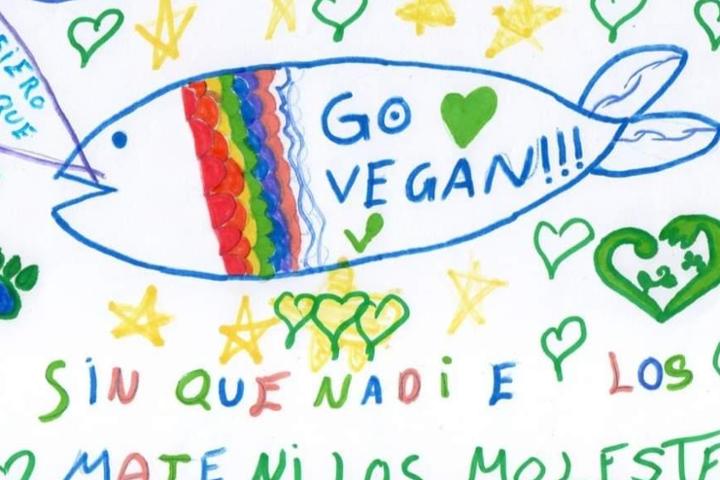 QUE
GO
VEGAN!!!
SIN QUE NADiE LOS
MATE Ni LOS MOLESTE